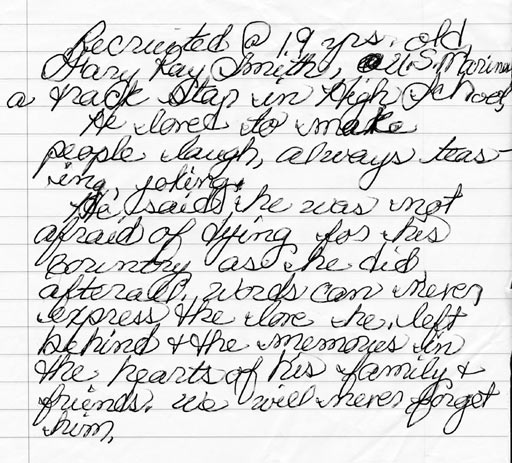 Recruited @ 19 yrs. old
Gary Kay Smith, U.S. Marine
a track star in High School
He loved to make
people laugh, always teas-
ing, joking.
He said he was not
afraid of dying for his
country as he did,
afterall, words can never
express the love he left
behind & the memories in
the hearts of his family &
friends. We will never forget
him,